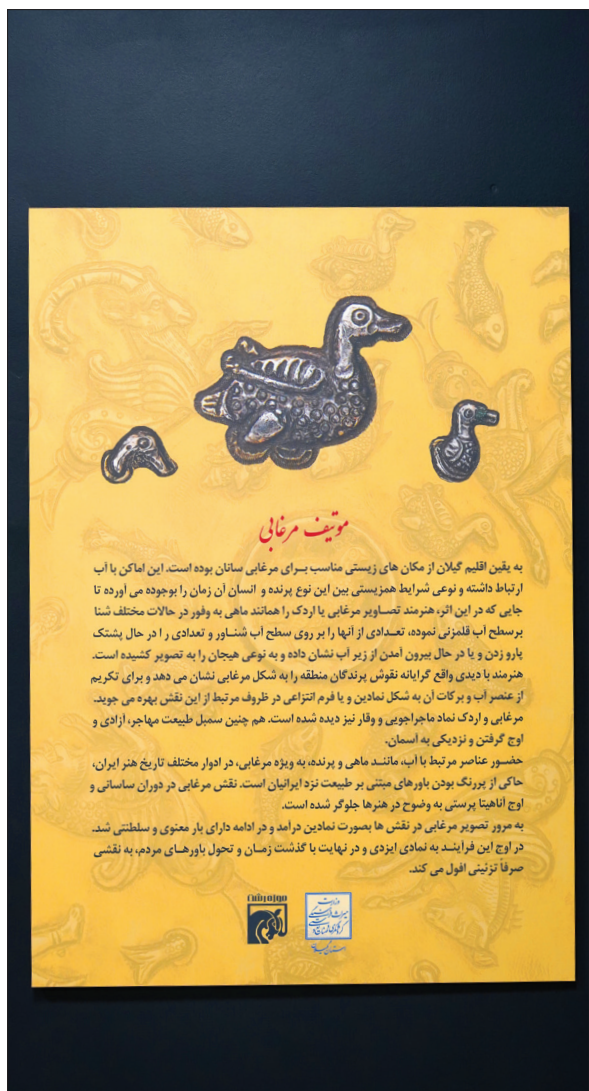 موتیف مرغابی
به یقین اقلیم گیلان از مکان های زیستی مناسب بـرای مرغابی سانان بوده است. این اماکن با آب
ارتباط داشته و نوعی شرایط همزیستی بین این نوع پرنده و انسان آن زمان را بوجوده می آورده تا
جایی که در این اثر، هنرمند تصـاویر مرغابی یا اردک را همانند ماهی به وفور در حالات مختلف شنا
برسطح آب قلمزنی نموده، تعـدادی از آنها را بر روی سطح آب شنـاور و تعدادی را در حال پشتک
پارو زدن و یا در حال بیرون آمدن از زیر آب نشان داده و به نوعی هیجان را به تصویر کشیده است.
هنرمند با دیدی واقع گرایانه نقوش پرندگان منطقه را به شکل مرغابی نشان می دهد و برای تکریم
از عنصر آب و برکات آن به شکل نمادین و یا فرم انتزاعی در ظروف مرتبط از این نقش بهره می جوید.
مرغابی و اردک نماد ماجراجویی و وقار نیز دیده شده است. هم چنین سمبل طبیعت مهاجر، آزادی و
اوج گرفتن و نزدیکی به آسمان.
حضـور عناصر مرتبط با آب، ماننـد ماهی و پرنده، به ویژه مرغابی، در ادوار مختلف تاریخ هنر ایران،
حاکی از پررنگ بودن باورهای مبتنی بر طبیعت نزد ایرانیان است. نقش مرغابی در دوران ساسانی و
اوج آناهیتا پرستی به وضوح در هنرها جلوگر شده است.
به مرور تصویر مرغابی در نقش ها بصورت نمادین درآمد و در ادامه دارای بار معنوی و سلطنتی شد.
در اوج این فرآینـد به نمادی ایزدی و در نهایت با گذشت زمـان و تحول باورهـای مردم، به نقشی
صرفاً تزئینی افول می کند.
موزه رشت
وزارت
میراث فرهنگی
گردشگری و صنایع دستی
استان گیلان